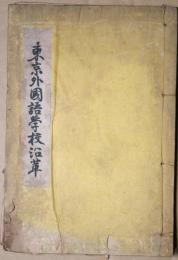 東京外國語學校沿革